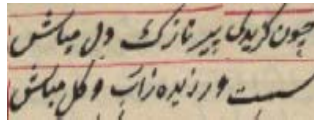 چون کزیدی پیر نازک دل مباش
سست و رزیده زاب و کل مباش